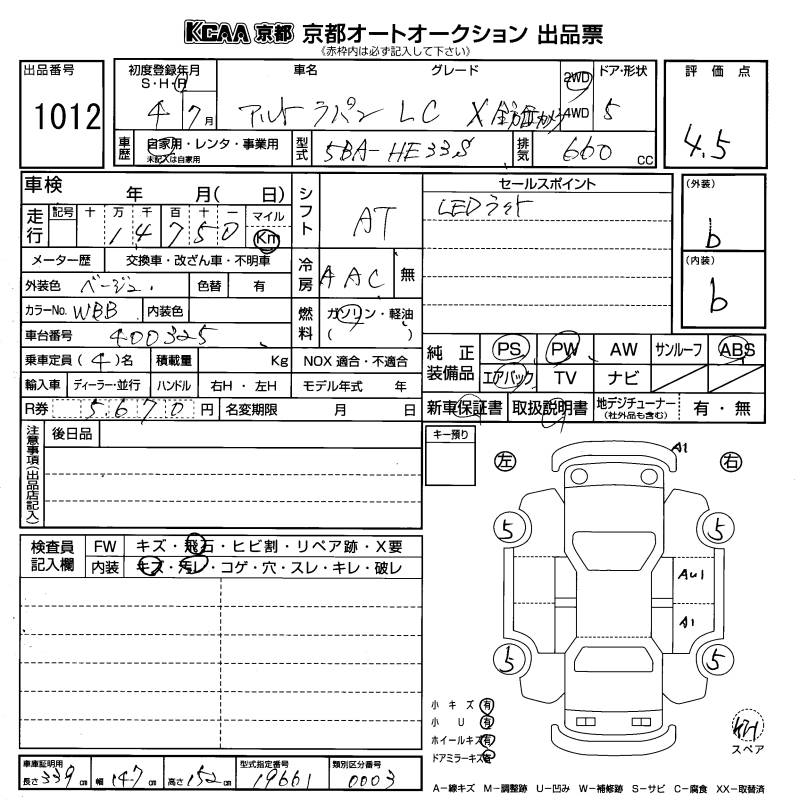 KCAA 京都 京都オートオークション 出品票
(赤枠内は必ず記入して下さい)
出品番号 1012
初度登録年月 S・H・R 4年 7月
車名 グレード
アルト ラパン LC X 全方位カメラ
2WD 4WD
ドア・形状 5
評価点 4.5
車歴 自家用・レンタ・事業用
未記入は自家用
型式 5BA-HE33S
排気 660 CC
車検 年 月( 日)
シフト AT
セールスポイント
LEDライト
(外装) b
(内装) b
走行 記号 十 万 千 百 十 一 マイル Km
1 4 7 5 0
メーター歴 交換車・改ざん車・不明車
冷房 AAC 無
外装色 ベージュ 色替 有
カラーNo. WBB 内装色
燃料 ガソリン・軽油
( )
車台番号 400325
乗車定員 (4)名 積載量 Kg NOX 適合・不適合
純正装備品 PS PW AW サンルーフ ABS
エアバック TV ナビ
輸入車 ディーラー・並行 ハンドル 右H・左H モデル年式 年
R券 5,670円 名変期限 月 日
新車保証書 取扱説明書 地デジチューナー (社外品も含む) 有・無
注意事項(出品店記入) 後日品
キー預り
左 右
A1
5 5
AU1
A1
5 5
検査員記入欄 FW キズ・飛石・ヒビ割・リペア跡・X要
内装 キズ・汚レ・コゲ・穴・スレ・キレ・破レ
小キズ 有
小U 有
ホイールキズ 有
ドアミラーキズ 有
スペア
車庫証明用 長さ 339cm 幅 147cm 高さ 152cm
型式指定番号 19661
類別区分番号 0003
A-線キズ M-調整跡 U-凹み W-補修跡 S-サビ C-腐食 XX-取替済